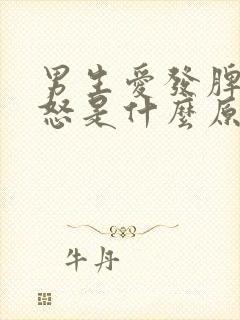 男生愛發脾
怒是什麼原
牛丹